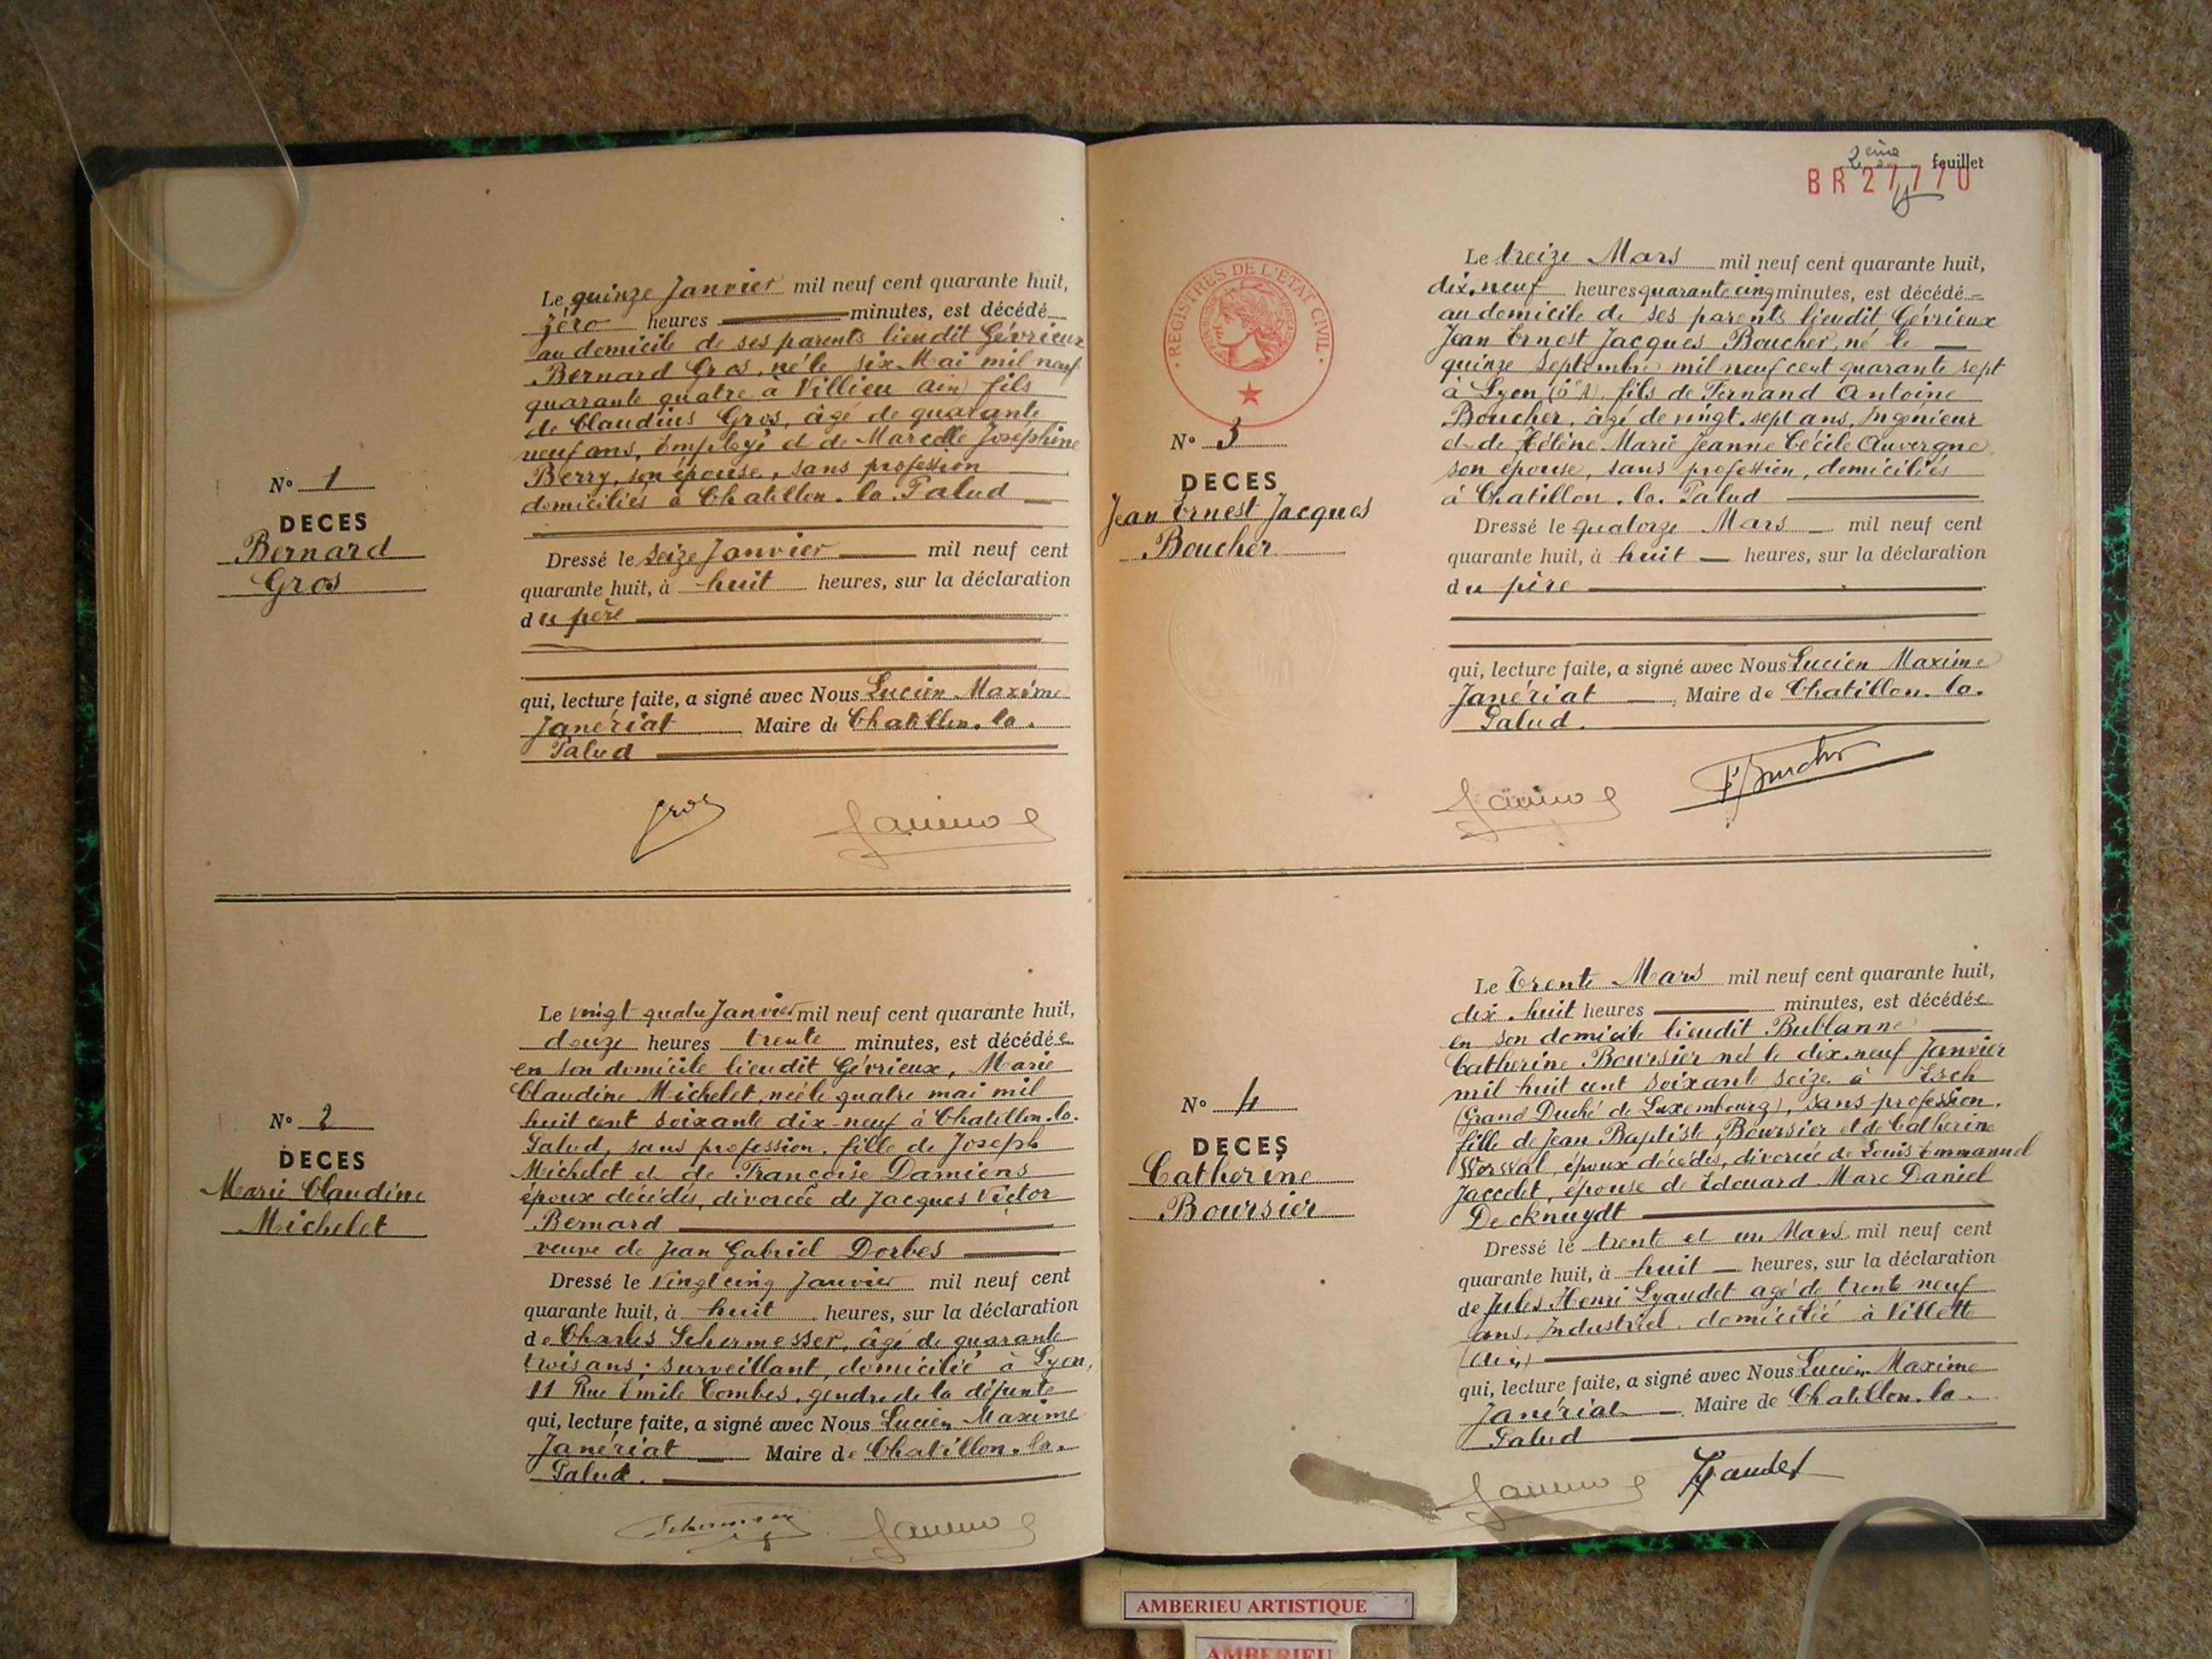 Nº 1
DECES
Bernard
Gros
Le quinze Janvier mil neuf cent quarante huit,
zéro heures minutes, est décédé
au domicile de ses parents lieudit Gévrieux
Bernard Gros, né le six Mai mil neuf
quarante quatre à Villieu (Ain) fils
de Claudius Gros, âgé de quarante
neuf ans, Employé et de Marcelle Joséphine
Berry, son épouse, sans profession
domiciliés à Chatillon-la-Palud
Dressé le seize Janvier mil neuf cent
quarante huit, à huit heures, sur la déclaration
du père
qui, lecture faite, a signé avec Nous Lucien Maxime
Janériat Maire de Chatillon-la-
Palud
Gros
Nº 2
DECES
Marie Claudine
Michelet
Le vingt quatre Janvier mil neuf cent quarante huit,
douze heures trente minutes, est décédée
en son domicile lieudit Gévrieux, Marie
Claudine Michelet, née le quatre mai mil
huit cent soixante dix-neuf à Chatillon-la-
Palud, sans profession, fille de Joseph
Michelet et de Françoise Damiens
époux décédés, divorcée de Jacques Victor
Bernard
veuve de Jean Gabriel Dorbes
Dressé le vingt cinq Janvier mil neuf cent
quarante huit, à huit heures, sur la déclaration
de Charles Schermesser, âgé de quarante
trois ans, surveillant, domicilié à Lyon,
11 Rue Emile Combes, gendre de la défunte
qui, lecture faite, a signé avec Nous Lucien Maxime
Janériat Maire de Chatillon-la-
Palud.
2ème feuillet
BR27770
REGISTRES DE L'ETAT CIVIL
Nº 3
DECES
Jean Ernest Jacques
Boucher
Le treize Mars mil neuf cent quarante huit,
dix-neuf heures quarante cinq minutes, est décédé
au domicile de ses parents lieudit Gévrieux
Jean Ernest Jacques Boucher, né le
quinze Septembre mil neuf cent quarante sept
à Lyon fils de Fernand Antoine
Boucher, âgé de vingt-sept ans, Ingénieur
et de Hélène Marie Jeanne Cécile Auvergne
son épouse, sans profession, domiciliés
à Chatillon-la-Palud
Dressé le quatorze Mars mil neuf cent
quarante huit, à huit heures, sur la déclaration
du père
qui, lecture faite, a signé avec Nous Lucien Maxime
Janériat, Maire de Chatillon-la-
Palud.
F. Boucher
Nº 4
DECES
Catherine
Boursier
Le Trente Mars mil neuf cent quarante huit,
dix-huit heures minutes, est décédée
en son domicile lieudit Bublanne
Catherine Boursier née le dix-neuf Janvier
mil huit cent soixante seize à Esch
(Grand Duché de Luxembourg), sans profession,
fille de Jean Baptiste Boursier et de Catherine
époux décédés, divorcée de Louis Emmanuel
Jaccolet, épouse de Edouard Marc Daniel
Decknuydt
Dressé le trente et un Mars mil neuf cent
quarante huit, à huit heures, sur la déclaration
de Jules Henri Lyaudet agé de trente neuf
ans, Industriel, domicilié à Villette
(Ain)
qui, lecture faite, a signé avec Nous Lucien Maxime
Janériat Maire de Chatillon-la-
Palud
Lyaudet
AMBERIEU ARTISTIQUE
AMBERIEU